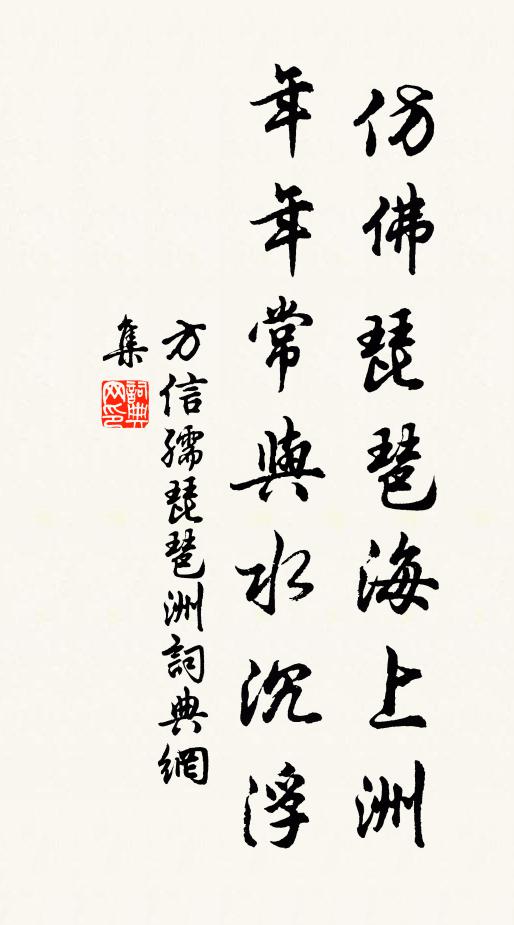 仿佛琵琶海上洲
年年常與水沉浮
方信孺琵琶洲詞典網
集
詞典網印